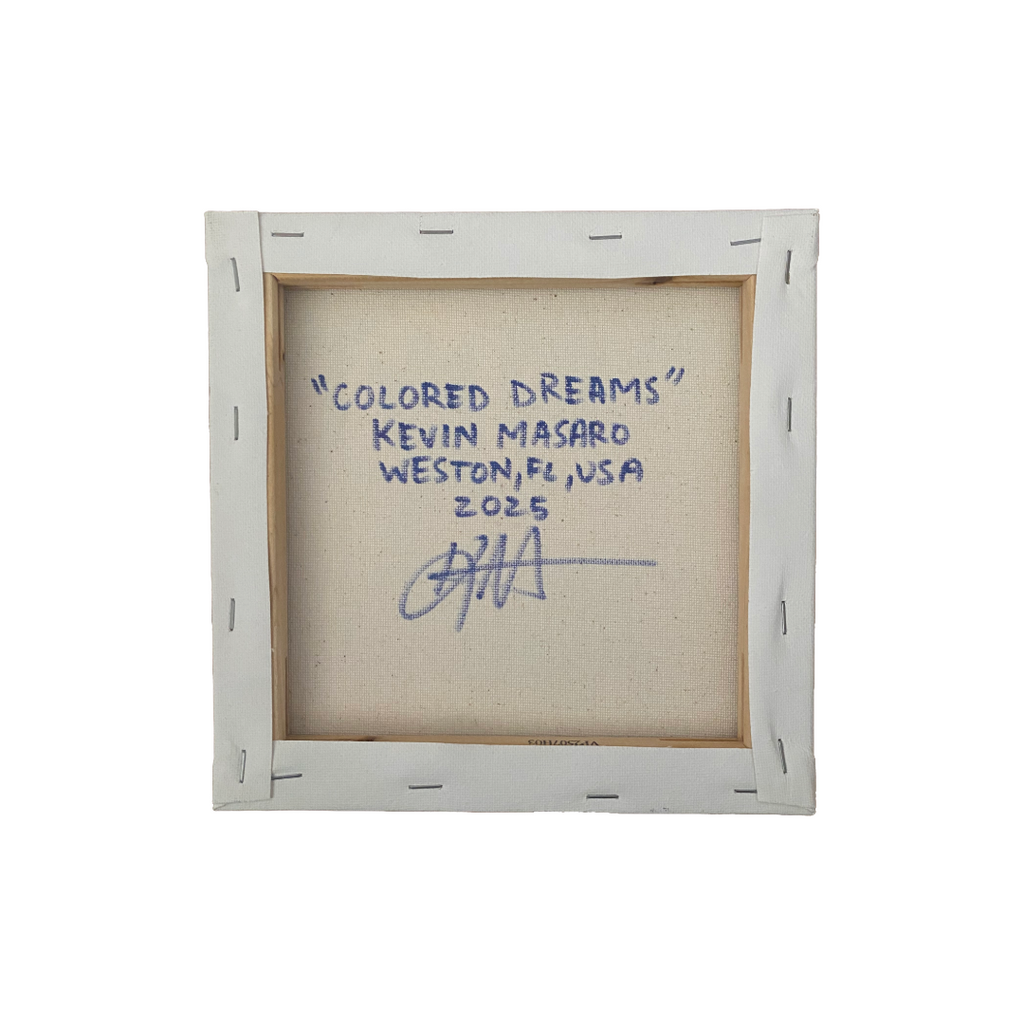 "COLORED DREAMS"
KEVIN MASARO
WESTON, FL, USA
2025